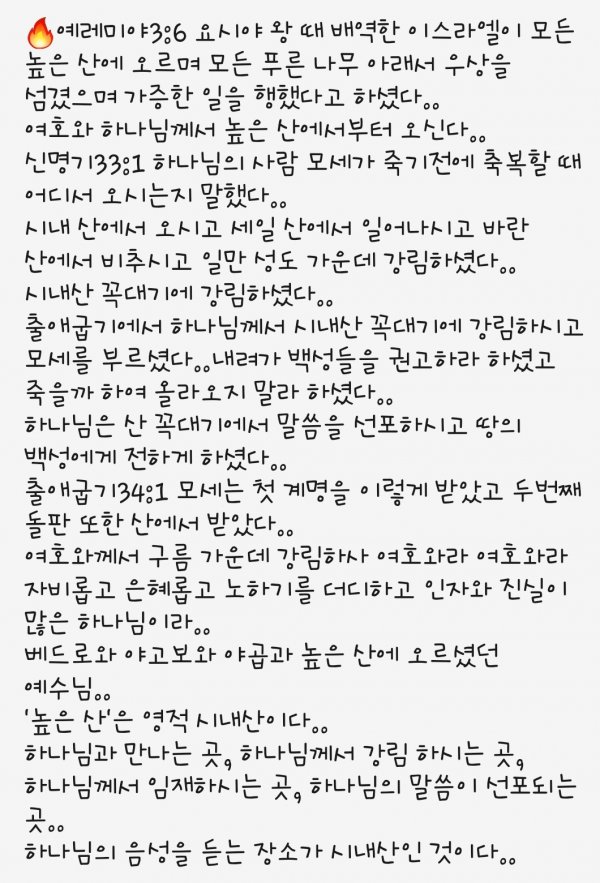 🔥예레미야3:6 요시야 왕 때 배역한 이스라엘이 모든
높은 산에 오르며 모든 푸른 나무 아래서 우상을
섬겼으며 가증한 일을 행했다고 하셨다。。
여호와 하나님께서 높은 산에서부터 오신다。。
신명기33:1 하나님의 사람 모세가 죽기전에 축복할 때
어디서 오시는지 말했다。。
시내 산에서 오시고 세일 산에서 일어나시고 바란
산에서 비추시고 일만 성도 가운데 강림하셨다。。
시내산 꼭대기에 강림하셨다。。
출애굽기에서 하나님께서 시내산 꼭대기에 강림하시고
모세를 부르셨다。。내려가 백성들을 권고하라 하셨고
죽을까 하여 올라오지 말라 하셨다。。
하나님은 산 꼭대기에서 말씀을 선포하시고 땅의
백성에게 전하게 하셨다。。
출애굽기34:1 모세는 첫 계명을 이렇게 받았고 두번째
돌판 또한 산에서 받았다。。
여호와께서 구름 가운데 강림하사 여호와라 여호와라
자비롭고 은혜롭고 노하기를 더디하고 인자와 진실이
많은 하나님이라。。
베드로와 야고보와 야곱과 높은 산에 오르셨던
예수님。。
'높은 산'은 영적 시내산이다。。
하나님과 만나는 곳, 하나님께서 강림 하시는 곳,
하나님께서 임재하시는 곳, 하나님의 말씀이 선포되는
곳。。
하나님의 음성을 듣는 장소가 시내산인 것이다。。